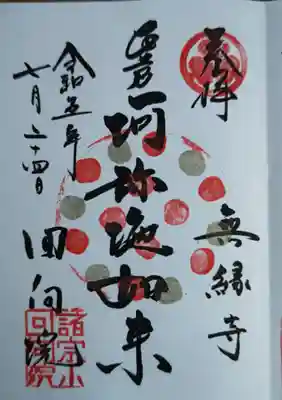 奉拝
無縁寺
阿弥陀如来
令和五年
七月二十四日
回向院
諸宗山
回向院